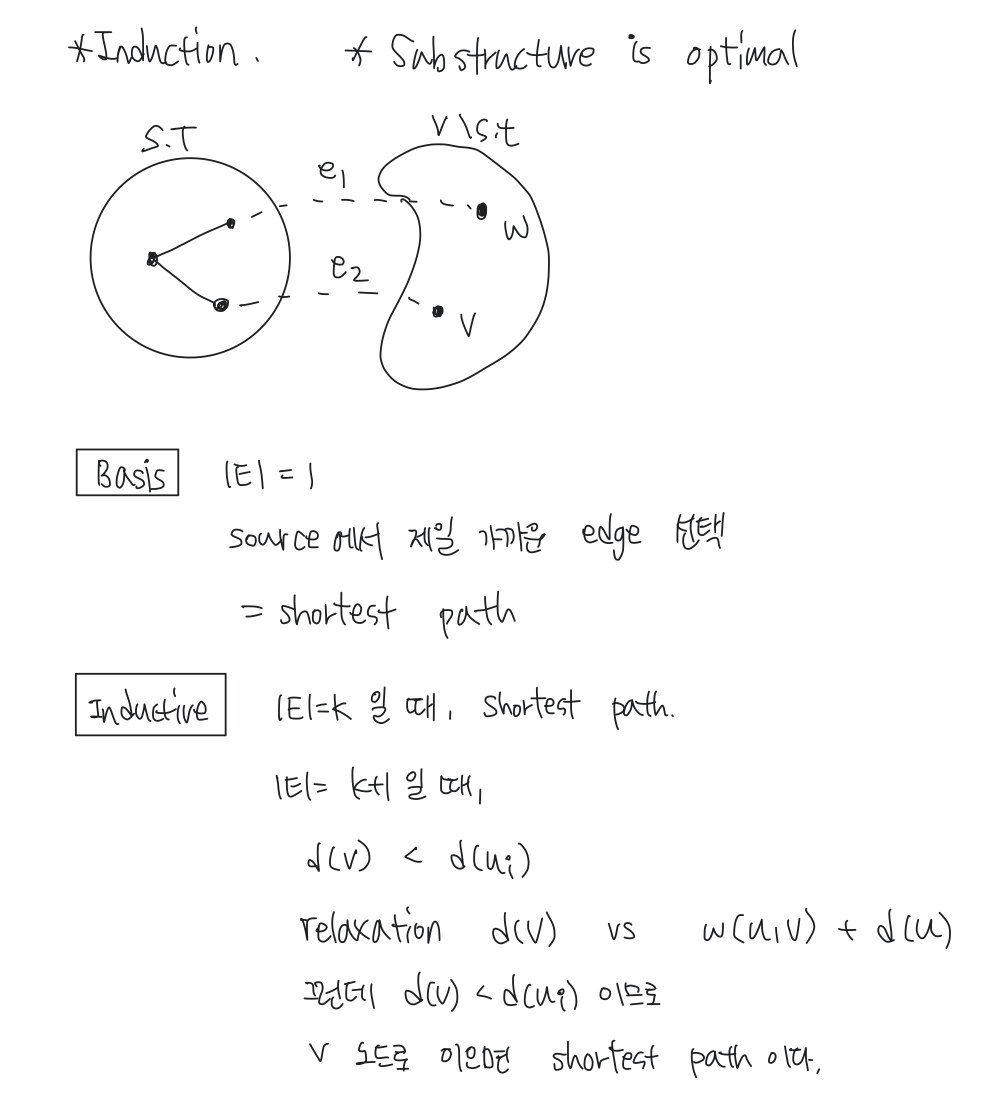 *Induction. * Substructure is optimal
S.T
V \ S.t
e1
w
e2
v
Basis |E| = 1
source 에서 제일 가까운 edge 선택
= shortest path
Inductive |E|=k 일 때, shortest path.
|E|= k+1 일 때,
d(v) < d(ui)
relaxation d(v) vs w(u,v) + d(u)
그런데 d(v) < d(ui) 이므로
v 노드로 이으면 shortest path 이다.